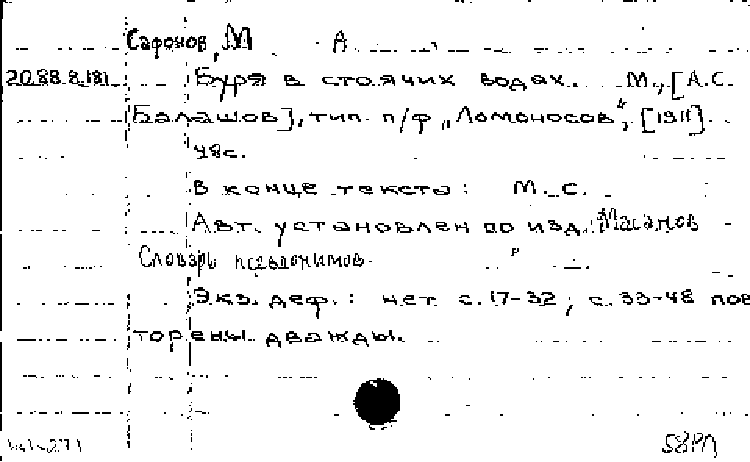 Сафонов, М А.
20.88.8.181 Буря в стоячих водах. М., [А.С.
Балашов], тип. п/ф „Ломоносов“, [1911].
48с.
В конце текста: М. С.
Авт. установлен по изд.: Масанов
Словарь псевдонимов.
Экз. деф.: нет с. 17-32; с. 33-48 пов
торены дважды.